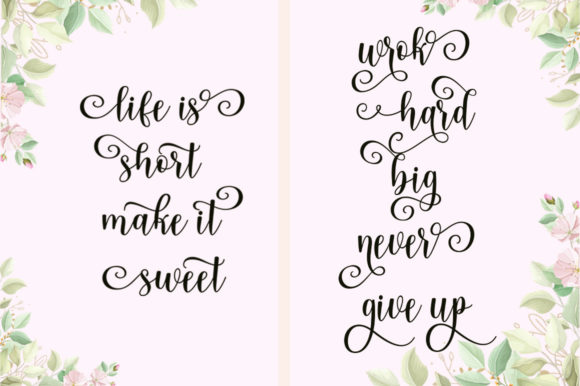 life is
short
make it
sweet
wrok
hard
big
never
give up